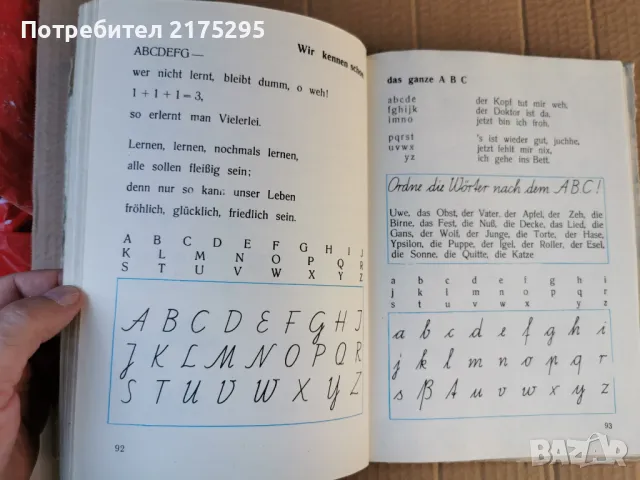 Потребител 2175295
Wir kennen schon
ABCDEFG —
wer nicht lernt, bleibt dumm, o weh!
1 + 1 + 1 = 3,
so erlernt man Vielerlei.
Lernen, lernen, nochmals lernen,
alle sollen fleißig sein;
denn nur so kann unser Leben
fröhlich, glücklich, friedlich sein.
A B C D E F G H I J
K L M N O P Q R
S T U V W X Y Z
A B C D E F G H I
J K L M N O P Q R
S T U V W X Y Z
92
das ganze A B C
abcde der Kopf tut mir weh,
fghijk der Doktor ist da,
lmno jetzt bin ich froh,
pqrst 's ist wieder gut, juchhe,
uvwx jetzt fehlt mir nix,
yz ich gehe ins Bett.
Ordne die Wörter nach dem ABC!
Uwe, das Obst, der Vater, der Apfel, der Zeh, die
Birne, das Fest, die Nuß, die Decke, das Lied, die
Gans, der Wolf, der Junge, die Torte, der Hase,
Ypsilon, die Puppe, der Igel, der Roller, der Esel,
die Sonne, die Quitte, die Katze
a b c d e f g h i
j k l m n o p q r
s t u v w x y z
a b c d e f g h i
j k l m n o p q r
s ß t u v w x y z
93
BAZAR